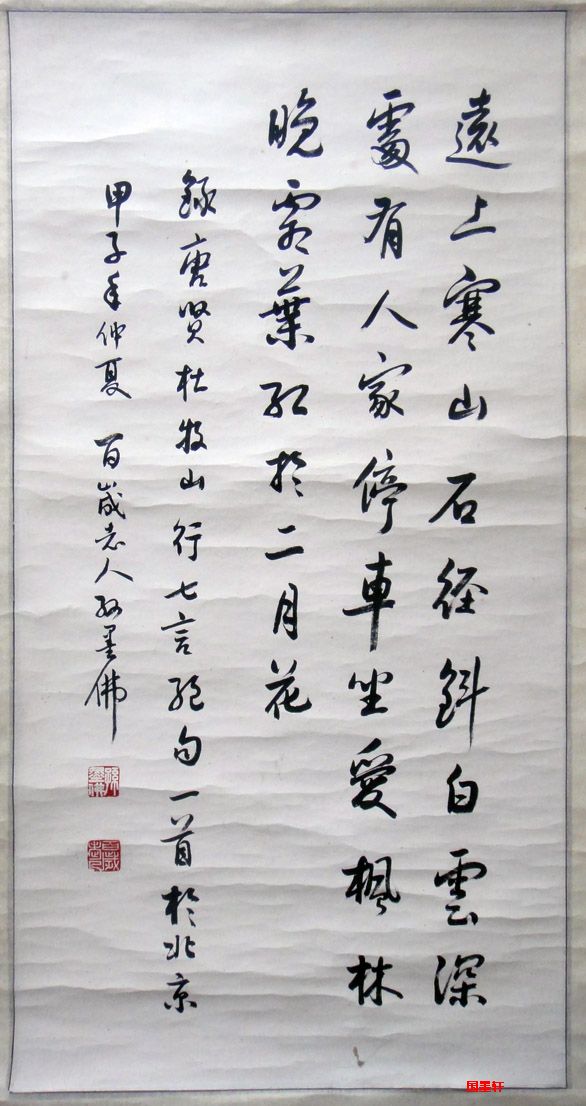 遠上寒山石徑斜白雲深
處有人家停車坐愛楓林
晚霜葉紅於二月花
錄唐賢杜牧山行七言絕句一首於北京
甲子年仲夏 百歲老人孫墨佛
孫墨佛
百歲老人
国墨轩